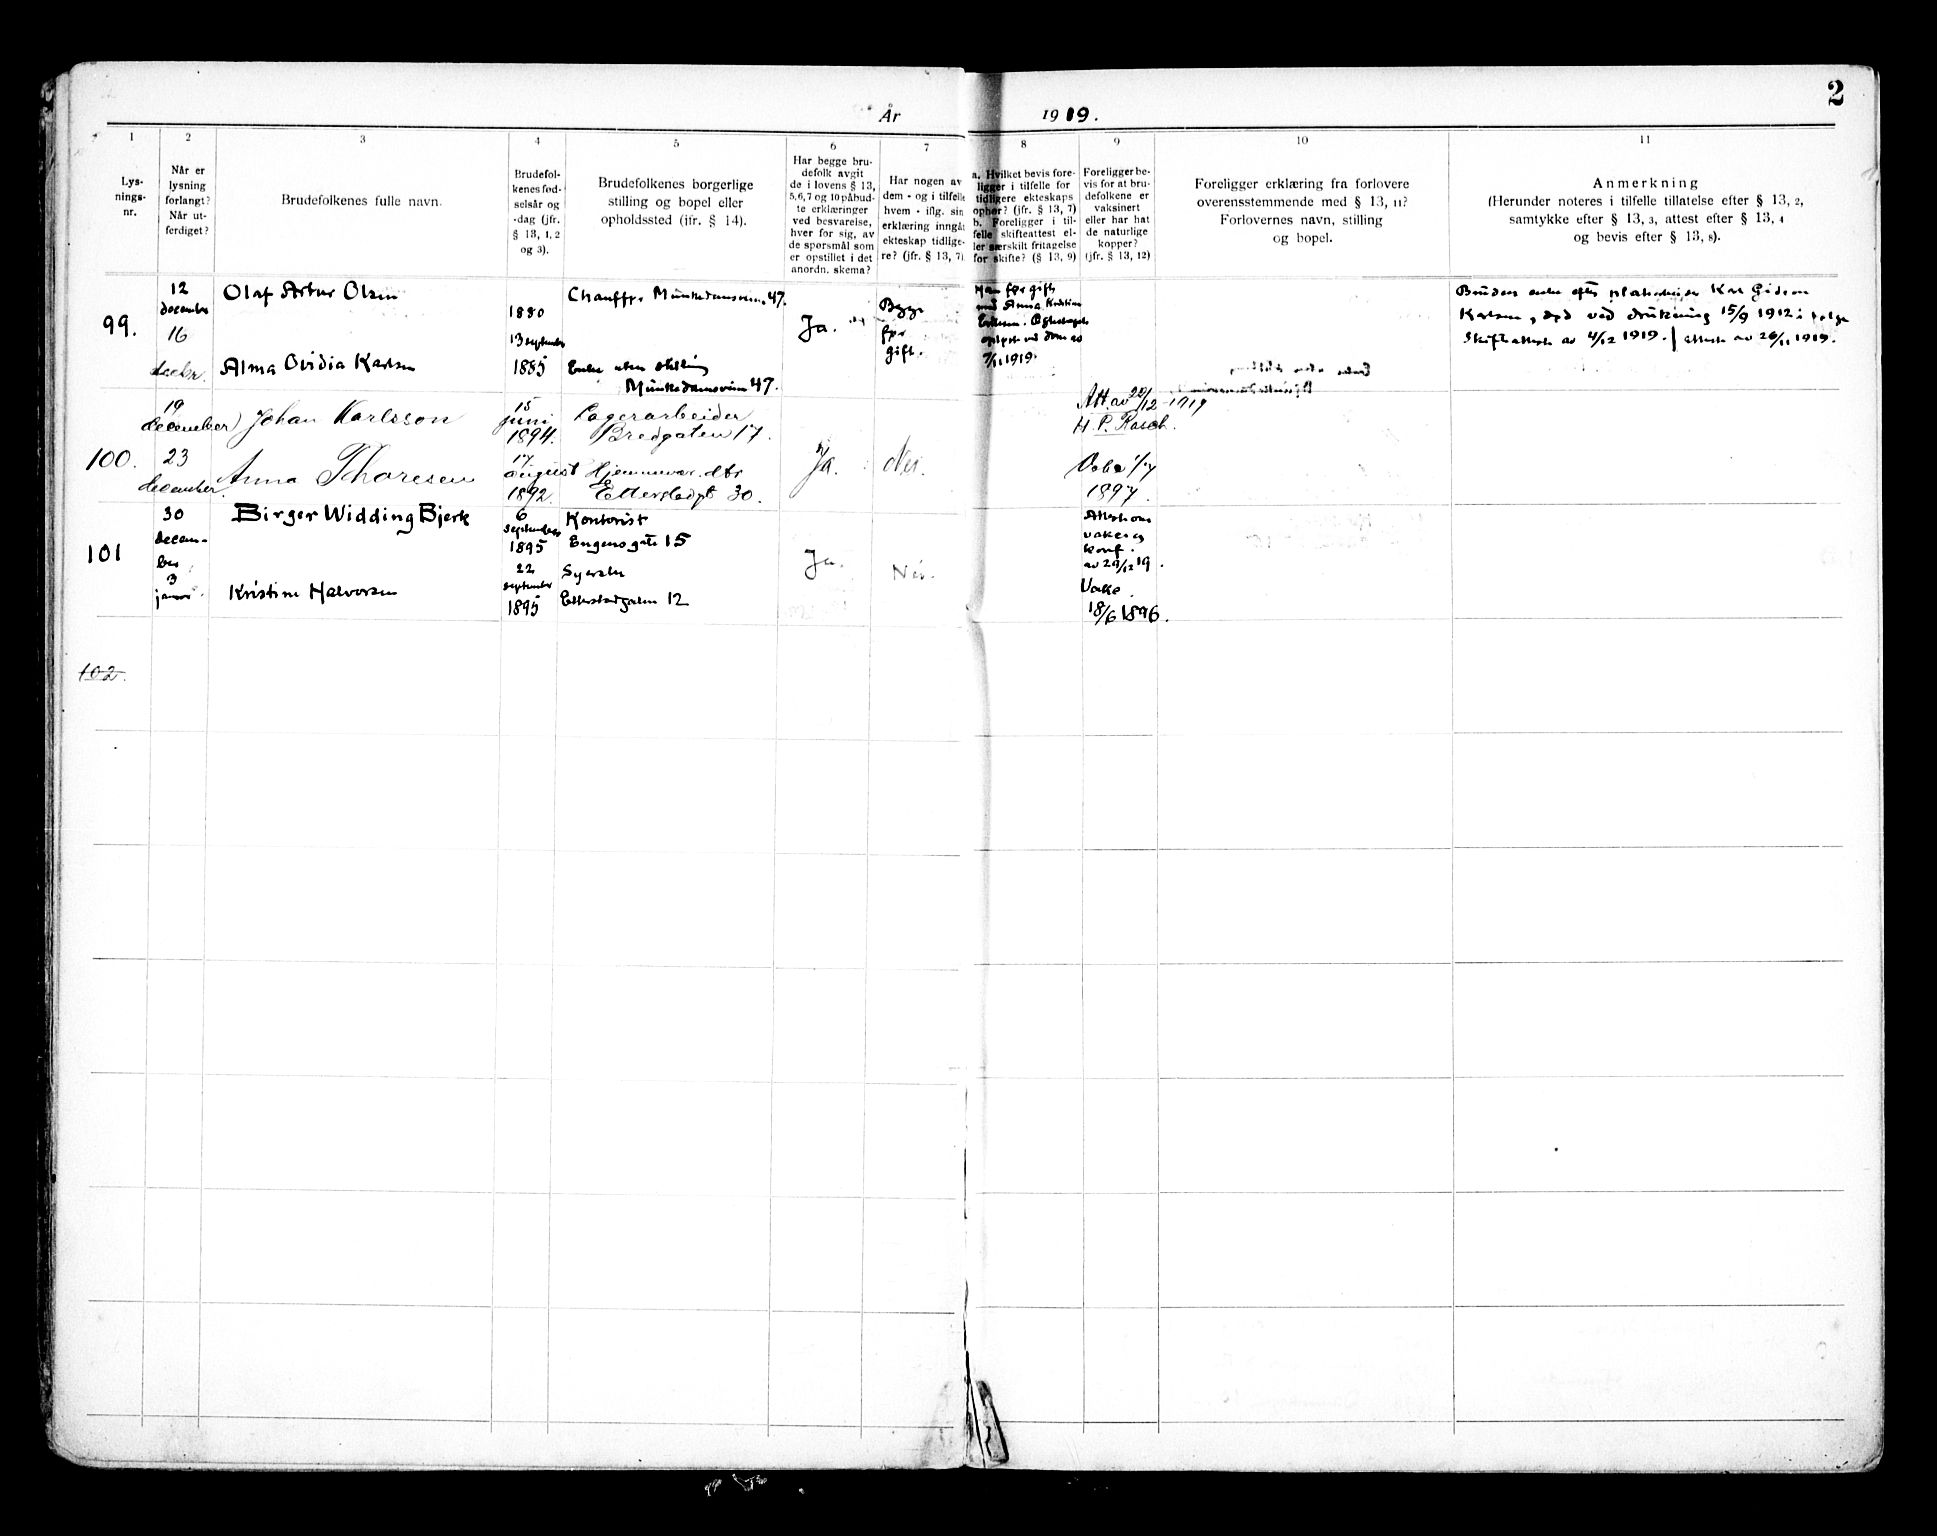 2
År 1919.
1 2 3 4 5 6 7 8 9 10 11
Lys-
nings-
nr.
Når er
lysning
forlangt?
Når ut-
ferdiget?
Brudefolkenes fulle navn.
Brudefol-
kenes fød-
selsår og
-dag (jfr.
§ 13, 1, 2
og 3).
Brudefolkenes borgerlige
stilling og bopel eller
opholdssted (jfr. § 14).
Har begge bru-
defolk avgit
de i lovens § 13,
5, 6, 7 og 10 påbud-
te erklæringer
ved besvarelse,
hver for sig, av
de spørsmål som
er opstillet i det
anordn. skema?
Har nogen av
dem - og i tilfelle
hvem - iflg. sin
erklæring inngåt
ekteskap tidlige-
re? (jfr. § 13, 7).
a. Hvilket bevis fore-
ligger i tilfelle for
tidligere ekteskaps
ophør? (jfr. § 13, 7)
b. Foreligger i til-
felle skifteattest el-
ler særskilt fritagelse
for skifte? (§ 13, 9)
Foreligger be-
vis for at bru-
defolkene er
vaksinert
eller har hat
de naturlige
kopper?
(jfr. § 13, 12)
Foreligger erklæring fra forlovere
overensstemmende med § 13, 11?
Forlovernes navn, stilling
og bopel.
Anmerkning
(Herunder noteres i tilfelle tillatelse efter § 13, 2,
samtykke efter § 13, 3, attest efter § 13, 4
og bevis efter § 13, 8).
99.
12
december
16
decbr.
Olaf Artur Olsen
Alma Ovidia Karlsen
1880
13 september
1885
Chauffør Munkedamsvein 47.
Enke uten stilling
Munkedamsveien 47.
Ja.
Begge
før
gift.
Han før gift
med Anna Kristine
Eriksen. Egteskapet
opløst ved dom av
7/11 1919.
Bruden enke efter platearbeider Karl Gideon
Karlsen, død ved drukning 15/9 1912 i følge
skifteattest av 4/12 1919. / attest av 26/11 1919.
100.
19
december
23
december
Johan Karlsson
Anna Thoresen
15
juni
1894.
17
august
1892
Lagerarbeider
Bredgaten 17.
Hjemmevær. dtr
Etterstadgt 30.
Ja.
Nei.
Att. av 22/12-1919
H. P. Rasch.
1/7
1897.
101
30
decem-
ber
3
januar
Birger Widding Bjerk
Kristine Halvorsen
6
september
1895
22
september
1895
Kontorist
Eugens gate 15
Syerske
Etterstadgaten 12
Ja.
Nei.
Attest om
vakc. og
konf.
av 29/12 19.
Vakc.
18/6 1896.
102.